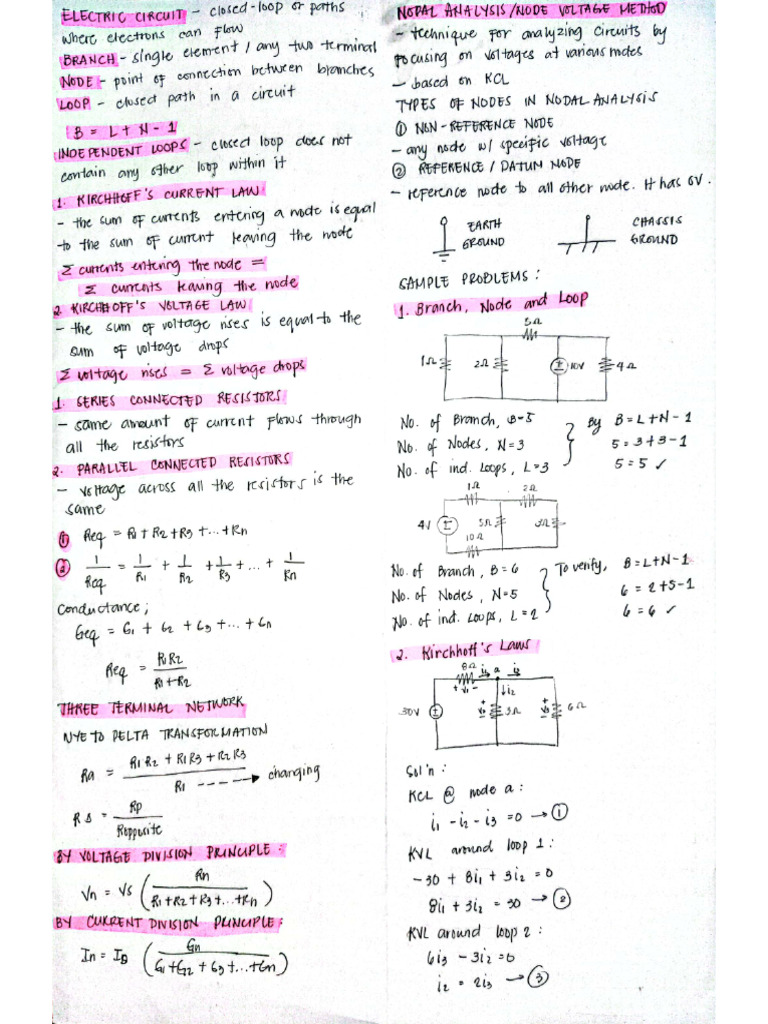 ELECTRIC CIRCUIT - closed-loop or paths
where electrons can flow
BRANCH - single element / any two terminal
NODE - point of connection between branches
LOOP - closed path in a circuit
B = L + N - 1
INDEPENDENT LOOPS - closed loop does not
contain any other loop within it
1. KIRCHHOFF'S CURRENT LAW
- the sum of currents entering a node is equal
to the sum of current leaving the node
Σ currents entering the node =
Σ currents leaving the node
2. KIRCHHOFF'S VOLTAGE LAW
- the sum of voltage rises is equal to the
sum of voltage drops
Σ voltage rises = Σ voltage drops
1. SERIES CONNECTED RESISTORS
- same amount of current flows through
all the resistors
2. PARALLEL CONNECTED RESISTORS
- voltage across all the resistors is the
same
① Req = R1 + R2 + R3 + ... + Rn
② 1/Req = 1/R1 + 1/R2 + 1/R3 + ... + 1/Rn
Conductance;
Geq = G1 + G2 + G3 + ... + Gn
Req = R1R2 / R1+R2
THREE TERMINAL NETWORK
WYE TO DELTA TRANSFORMATION
Ra = R1R2 + R1R3 + R2R3 / R1 ----→ changing
RΔ = Rp / Ropposite
BY VOLTAGE DIVISION PRINCIPLE:
Vn = Vs (Rn / R1+R2+R3+...+Rn)
BY CURRENT DIVISION PRINCIPLE:
In = Is (Gn / G1+G2+G3+...+Gn)
NODAL ANALYSIS / NODE VOLTAGE METHOD
- technique for analyzing circuits by
focusing on voltages at various nodes
- based on KCL
TYPES OF NODES IN NODAL ANALYSIS
① NON-REFERENCE NODE
- any node w/ specific voltage
② REFERENCE / DATUM NODE
- reference node to all other node. It has 0V.
EARTH
GROUND
CHASSIS
GROUND
SAMPLE PROBLEMS:
1. Branch, Node and Loop
5Ω
1Ω 2Ω 10V 4Ω
No. of Branch, B=5
No. of Nodes, N=3
No. of ind. Loops, L=3
By B=L+N-1
5=3+3-1
5=5 ✓
1Ω 2Ω
4V 5Ω 3Ω
10Ω
No. of Branch, B=6
No. of Nodes, N=5
No. of ind. Loops, L=2
To verify, B=L+N-1
6=2+5-1
6=6 ✓
2. Kirchhoff's Laws
8Ω i1 a i3
+ v1 - ↓i2
30V + v2 - 3Ω + v3 - 6Ω
Sol'n:
KCL @ node a:
i1 - i2 - i3 = 0 → ①
KVL around loop 1:
-30 + 8i1 + 3i2 = 0
8i1 + 3i2 = 30 → ②
KVL around loop 2:
6i3 - 3i2 = 0
i2 = 2i3 → ③